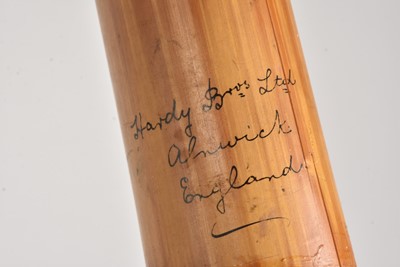 Hardy Bros Ltd
Alnwick
England